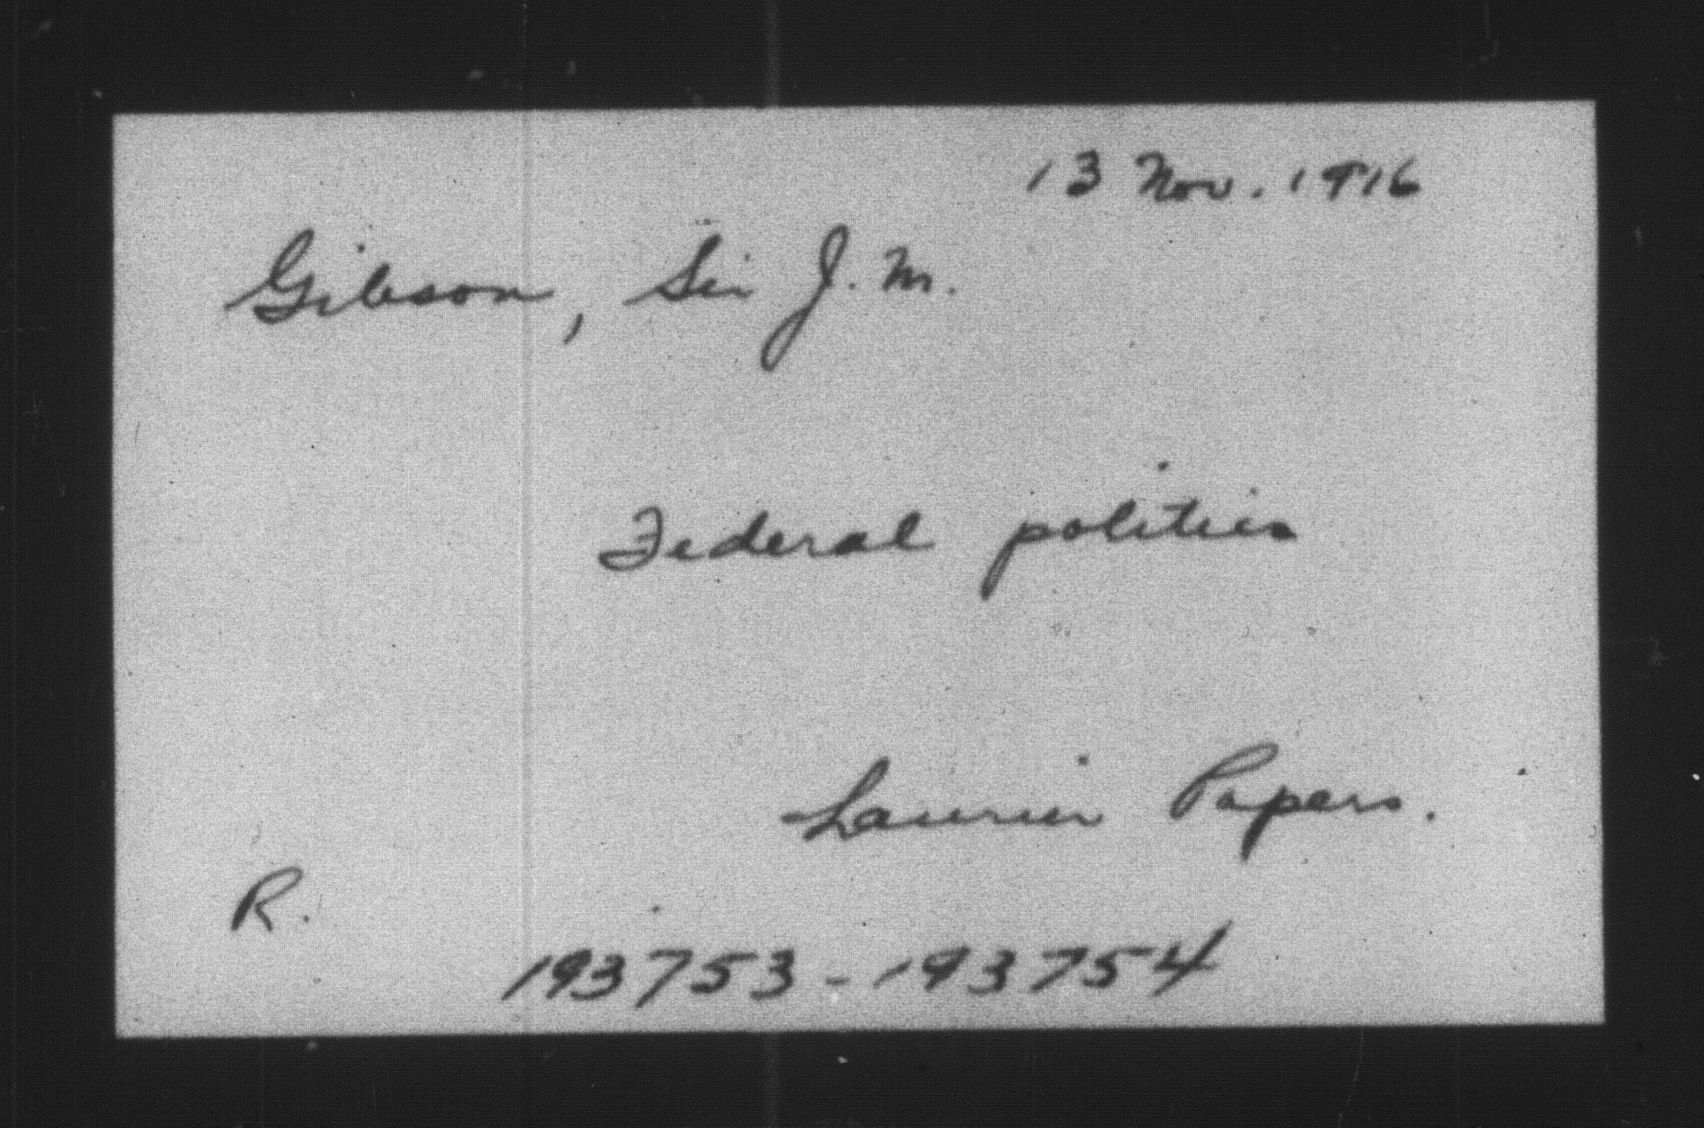 13 Nov. 1916
Gibson, Sir J. M.
Federal politics
Laurier Papers.
R.
193753-193754